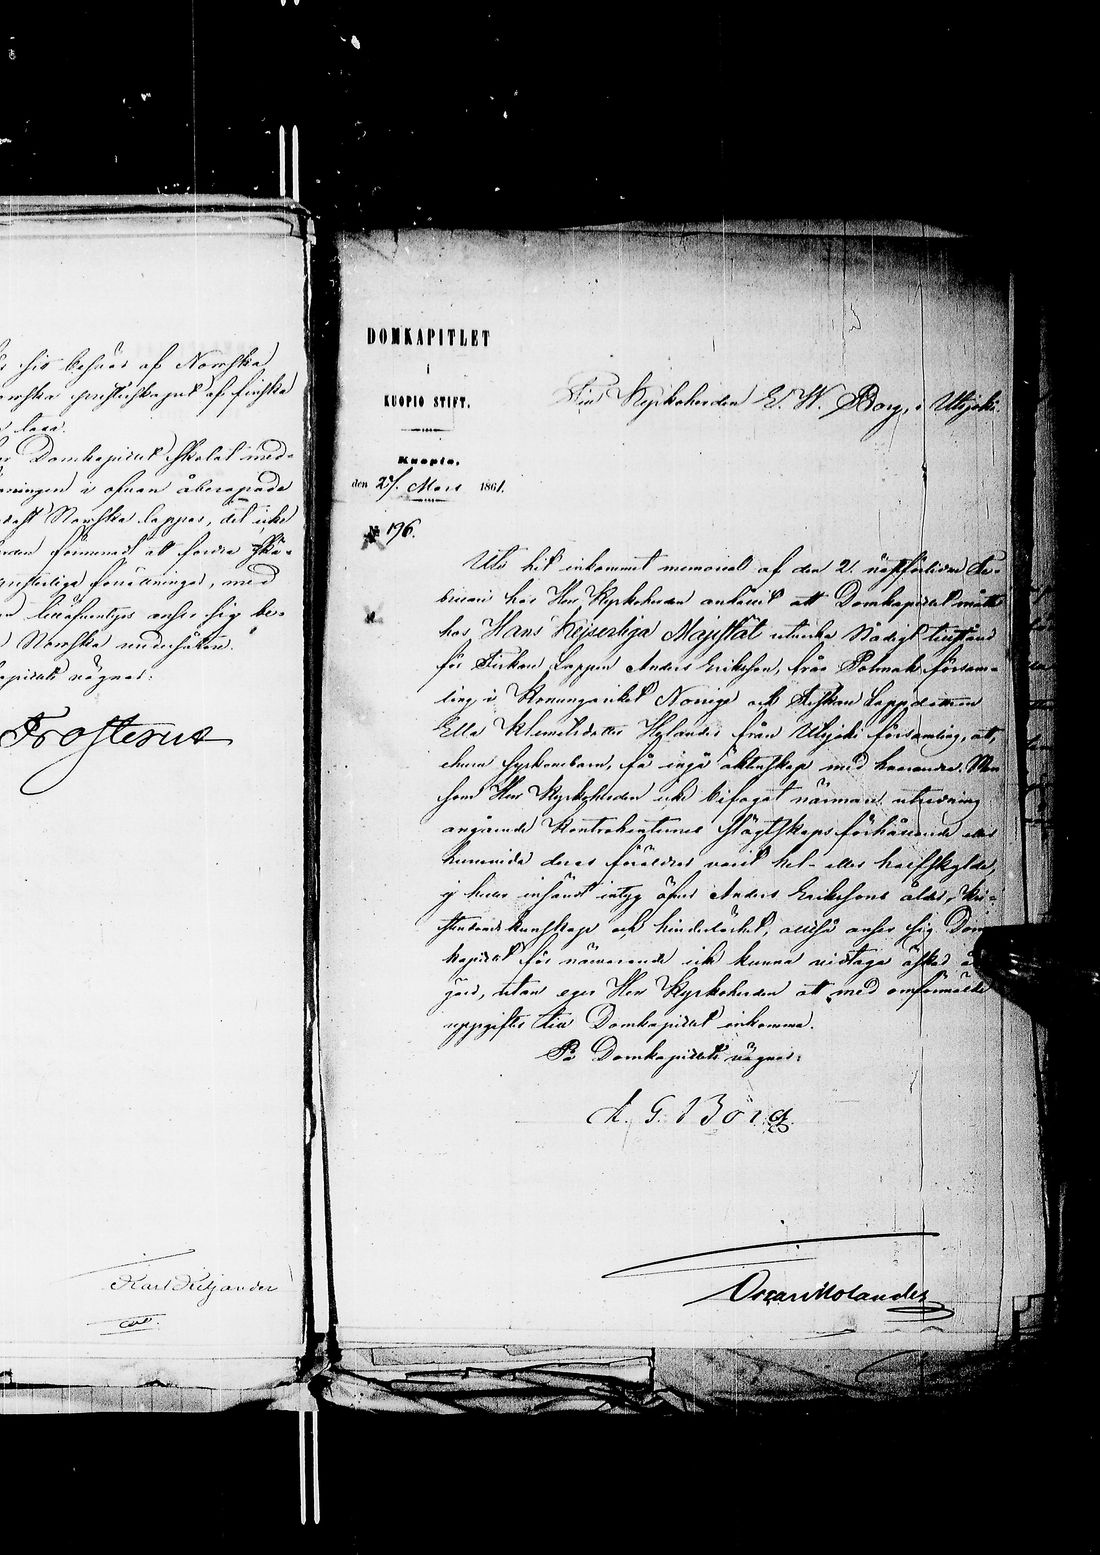 sig behöes af Norrska
Norrska presterskapet af finska
Domkapitlet skolat med-
i ofvan åberopade
Norrska lappar, det icke
förmenadt att fordra skä-
presterliga förrättningar, med
anser sig be-
Norrska undersåtare."
vägnar:
Frosterus
Karl Kiljander
DOMKAPITLET
i
KUOPIO STIFT.
Kuopio,
den 27 Mars 1861.
№ 196.
Till Kyrkoherden E. W. Borg, i Utsjoki.
Uti hit inkommet memorial af den 2. nästförlidne Fe-
bruari har Herr Kyrkoherden anhållit att Domkapitlet måtte
hos Hans Kejserliga Majestät utverka Nådigt tillstånd
för Fiskare Lappen Anders Eriksson, från Polmak försam-
ling i Konungariket Norrige och Fiskare Lappdottren
Ella Klemetsdotter Hylander från Utsjoki församling, att,
ehuru syskonebarn, få ingå äktenskap med hvarandra. Men
som Herr Kyrkoherden icke bifogat närmare utredning
angående Kontrahenternes slägtskapsförhållande eller
huruvida deras föräldrar varit hel- eller halfskylde,
ej heller insändt intyg öfver Anders Erikssons ålder, Kri-
stendomskunskap och hinderlöshet, alltså anser sig Dom-
kapitlet för närvarande icke kunna vidtaga äskad åt-
gärd, utan eger Herr Kyrkoherden att med omförmälde
uppgifter till Domkapitlet inkomma.
På Domkapitlets vägnar:
A. G. Borg
Oscar Molander